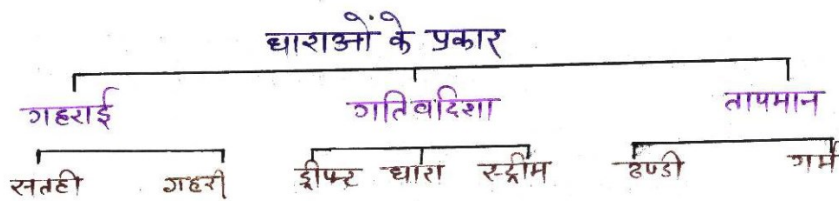 धाराओं के प्रकार
गहराई गति व दिशा तापमान
सतही गहरी ड्रीफ्ट धारा स्ट्रीम ठण्डी गर्म